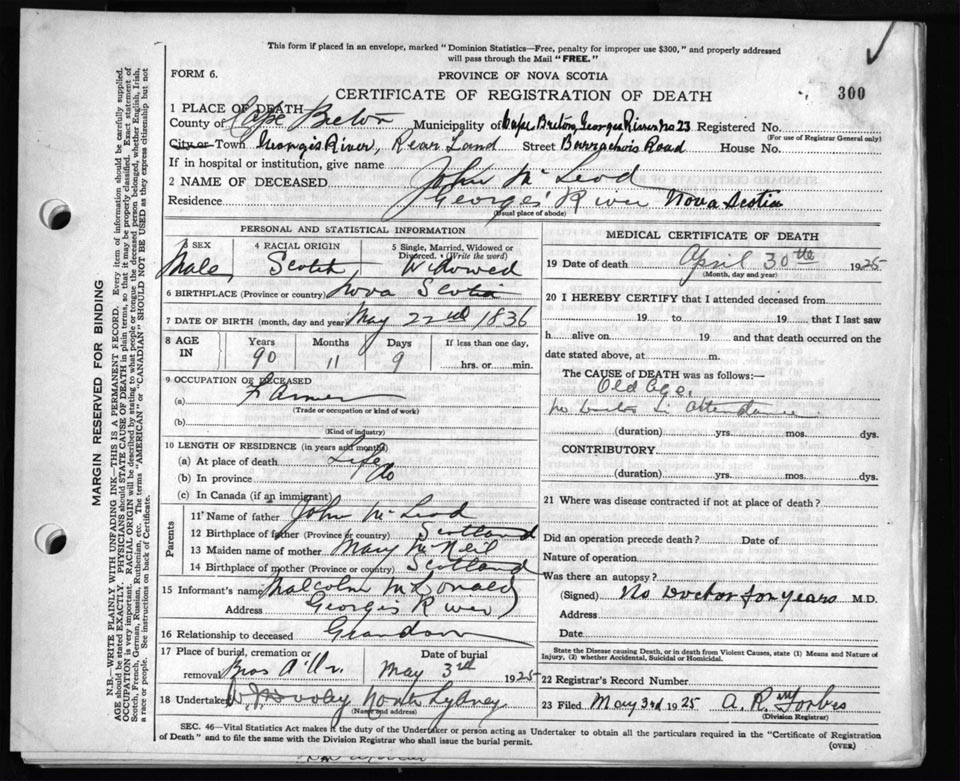 This form if placed in an envelope, marked "Dominion Statistics—Free, penalty for improper use $300," and properly addressed
will pass through the Mail "FREE."
FORM 6.
PROVINCE OF NOVA SCOTIA
CERTIFICATE OF REGISTRATION OF DEATH
300
1 PLACE OF DEATH
County of Cape Breton Municipality of Cape Breton, Georges River No 23 Registered No.
(For use of Registrar General only)
City or Town Georges River, Rear Land Street Barrachois Road House No.
If in hospital or institution, give name
2 NAME OF DECEASED John McLeod
Residence Georges River Nova Scotia
(Usual place of abode)
PERSONAL AND STATISTICAL INFORMATION
3 SEX 4 RACIAL ORIGIN 5 Single, Married, Widowed or Divorced. (Write the word)
Male, Scotch, Widowed
6 BIRTHPLACE (Province or country) Nova Scotia
7 DATE OF BIRTH (month, day and year) May 22nd 1836
8 AGE IN Years Months Days If less than one day,
90 11 9 hrs. or min.
9 OCCUPATION OF DECEASED
(a) Farmer
(Trade or occupation or kind of work)
(b)
(Kind of industry)
10 LENGTH OF RESIDENCE (in years and months)
(a) At place of death Life
(b) In province Do
(c) In Canada (if an immigrant)
Parents
11 Name of father John McLeod
12 Birthplace of father (Province or country) Scotland
13 Maiden name of mother Mary McNeil
14 Birthplace of mother (Province or country) Scotland
15 Informant's name Malcolm McDonald
Address Georges River
16 Relationship to deceased Grandson
17 Place of burial, cremation or removal Date of burial
Bras D'Or May 3rd 1925
18 Undertaker North Sydney
(Name and address)
MEDICAL CERTIFICATE OF DEATH
19 Date of death April 30th 1925
(Month, day and year)
20 I HEREBY CERTIFY that I attended deceased from
19 to 19 that I last saw
h alive on 19 and that death occurred on the
date stated above, at m.
The CAUSE of DEATH was as follows:—
Old Age.
no Doctor in attendance
(duration) yrs. mos. dys.
CONTRIBUTORY
(duration) yrs. mos. dys.
21 Where was disease contracted if not at place of death?
Did an operation precede death? Date of
Nature of operation
Was there an autopsy?
(Signed) No Doctor for years M.D.
Address
Date
State the Disease causing Death, or in death from Violent Causes, state (1) Means and Nature of
Injury, (2) whether Accidental, Suicidal or Homicidal.
22 Registrar's Record Number
23 Filed May 3rd 1925 A. R. Forbes
(Division Registrar)
SEC. 46—Vital Statistics Act makes it the duty of the Undertaker or person acting as Undertaker to obtain all the particulars required in the "Certificate of Registration
of Death" and to file the same with the Division Registrar who shall issue the burial permit.
(OVER)
MARGIN RESERVED FOR BINDING
N.B.—WRITE PLAINLY WITH UNFADING INK—THIS IS A PERMANENT RECORD. Every item of information should be carefully supplied.
AGE should be stated EXACTLY. PHYSICIANS should STATE CAUSE OF DEATH in plain terms, so that it may be properly classified. Exact statement of
OCCUPATION is very important. RACIAL ORIGIN will be described by stating to what people or tongue the deceased person belonged, whether English, Irish,
Scotch, French, German, Russian, Ruthenian, etc. The terms "AMERICAN" or "CANADIAN" SHOULD NOT BE USED as they express citizenship but not
a race or people. See instructions on back of Certificate.